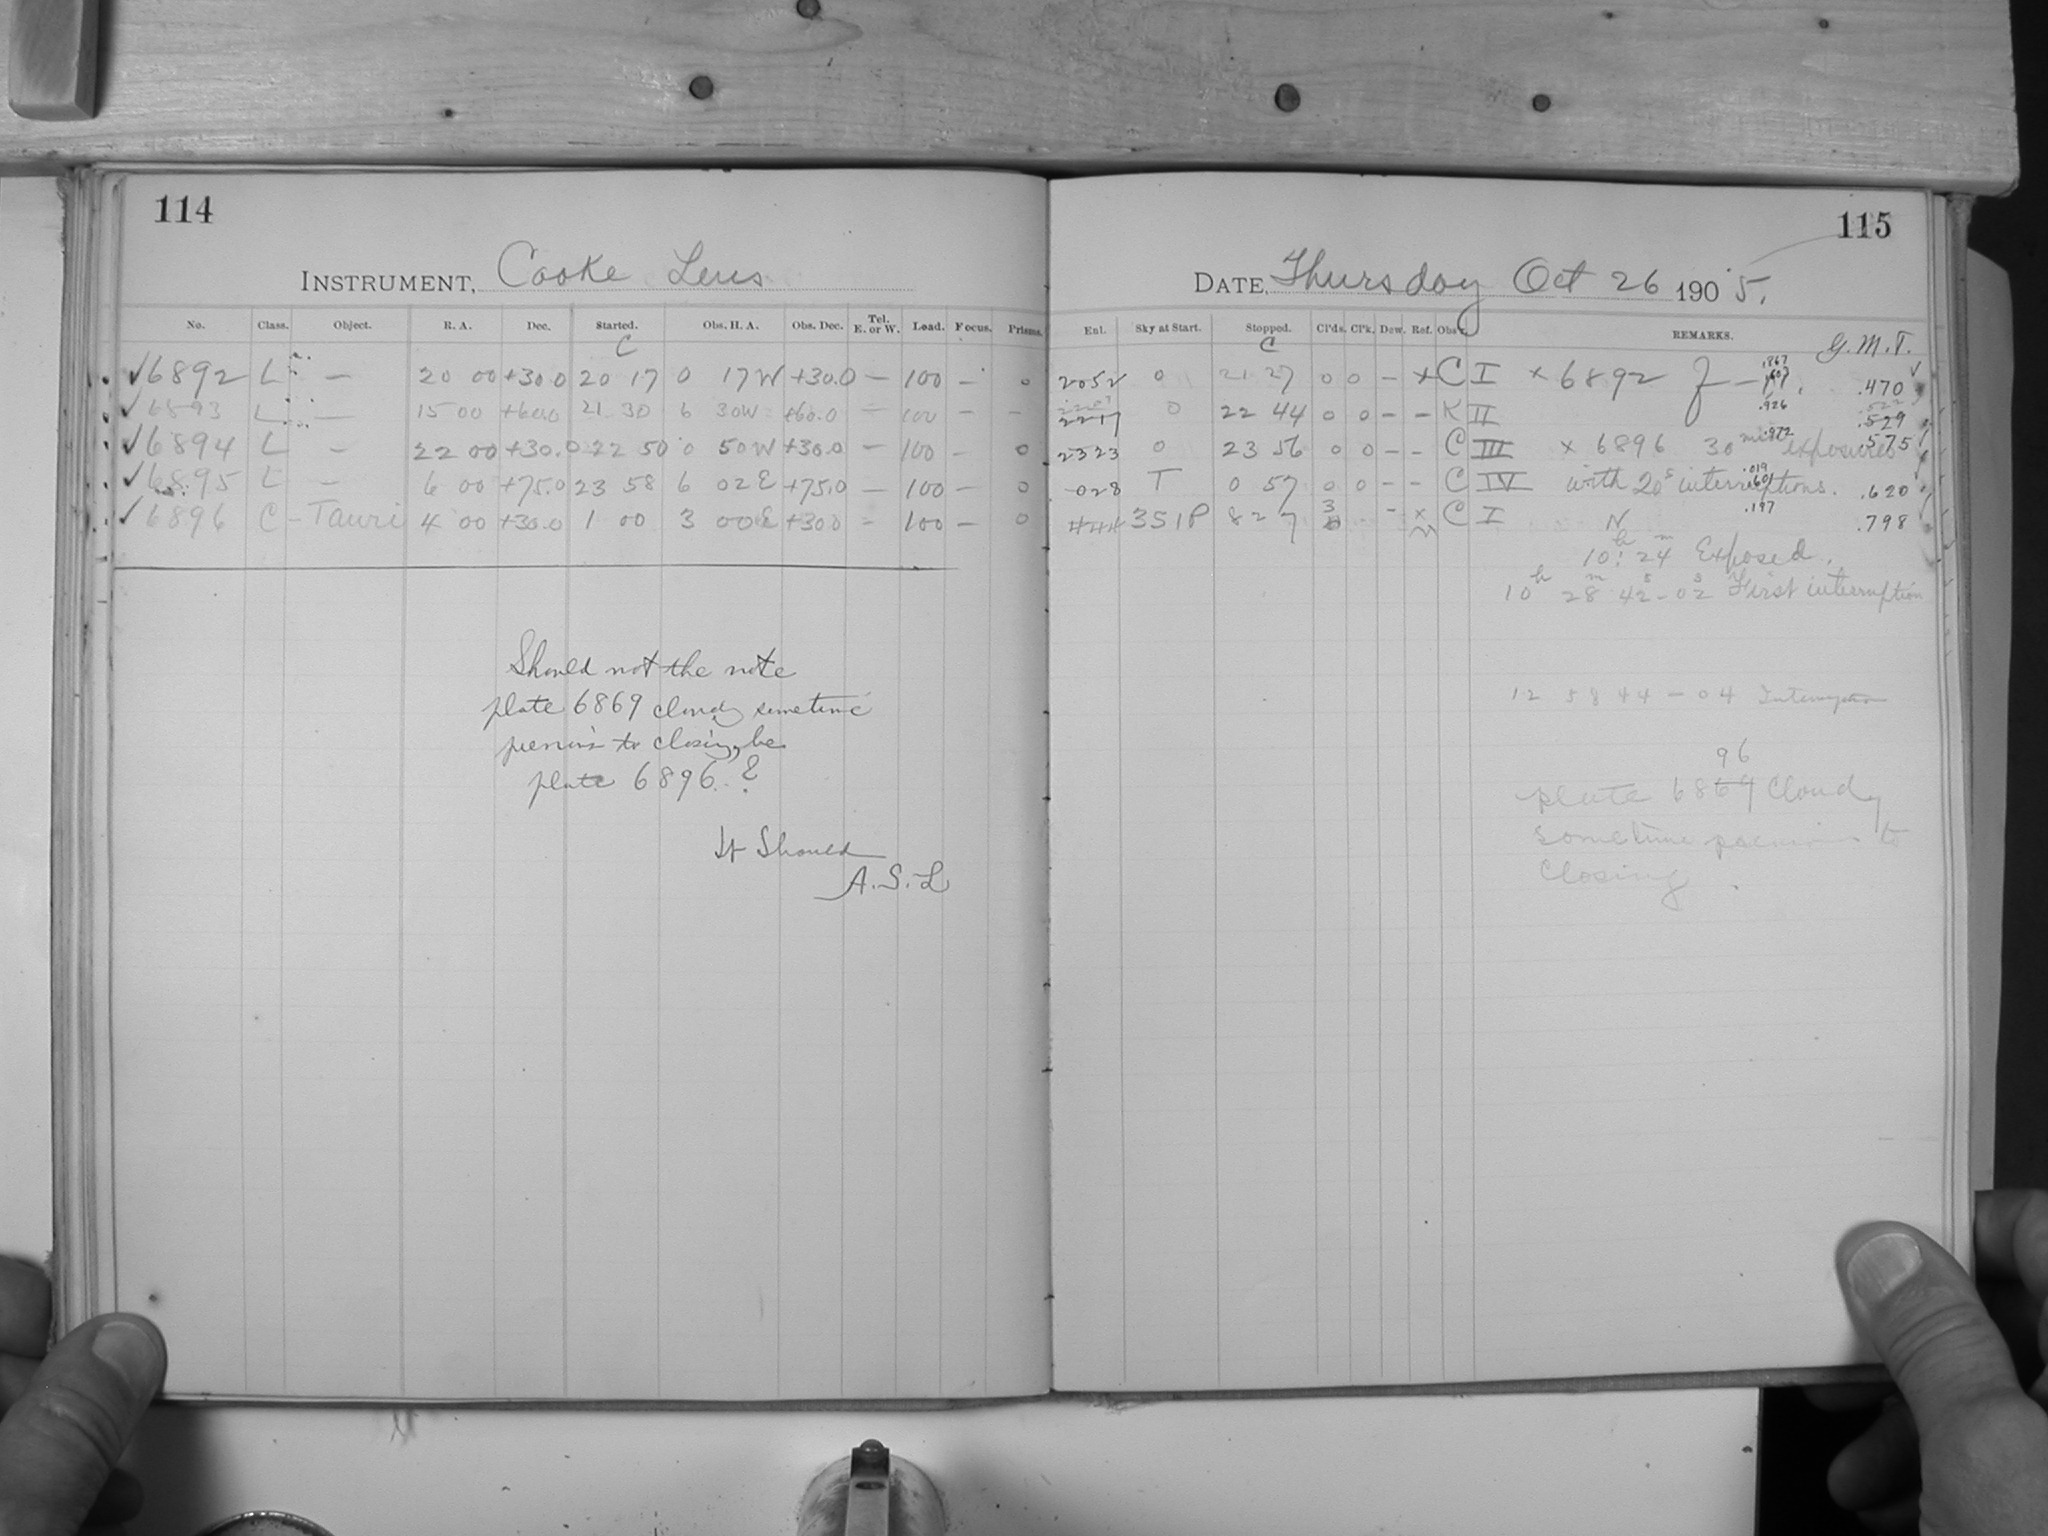 114
INSTRUMENT, Cooke Lens
No. Class. Object. R. A. Dec. Started. Obs. H. A. Obs. Dec. Tel. E. or W. Load. Focus. Prisms.
C
✓6892 L — 20 00 +30.0 20 17 0 17W +30.0 — 100 — 0
✓6893 L — 15 00 +60.0 21 30 6 30W +60.0 — 100 — —
✓6894 L — 22 00 +30.0 22 50 0 50W +30.0 — 100 — 0
✓6895 L — 6 00 +75.0 23 58 6 02E +75.0 — 100 — 0
✓6896 C - Tauri 4 00 +30.0 1 00 3 00E +30.0 — 100 — 0
Should not the note
plate 6869 cloudy sometime
previous to closing, be
plate 6896.?
It Should
A.S.L
115
DATE, Thursday Oct 26 1905.
Ent. Sky at Start. Stopped. Cl'ds. Cl'k. Dew. Ref. Obs'r. REMARKS. G.M.T.
C
2052 0 21 27 0 0 — × C I × 6892 .867 .470
2217 0 22 44 0 0 — — K II .926 .529
2323 0 23 56 0 0 — — C III × 6896 30 min exposures .972 .575
028 T 0 57 0 0 — — C IV with 20s interruptions. .019 .620
351P 8 27 3 — × C I N .197 .798
10h 24m Exposed.
10h 28m 42s-02s First interruption
12 58 44 - 04 Interruption
96
plate 6869 Cloudy
sometime previous to
closing.